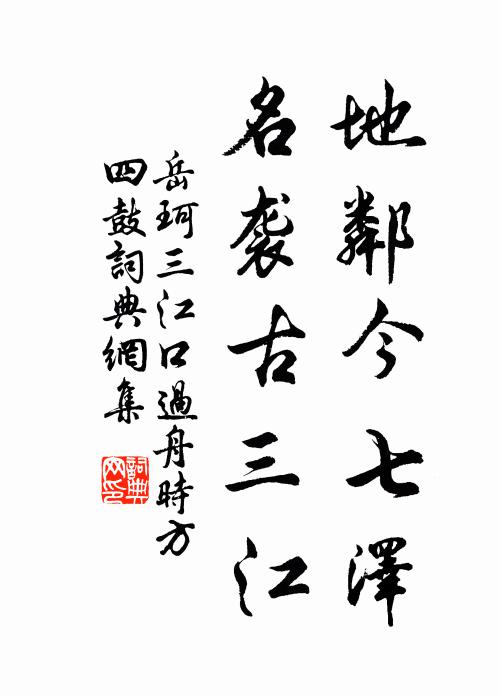 地鄰今七澤
名袭古三江
岳珂三江口過舟時方
四鼓詞典網集
詞典网印